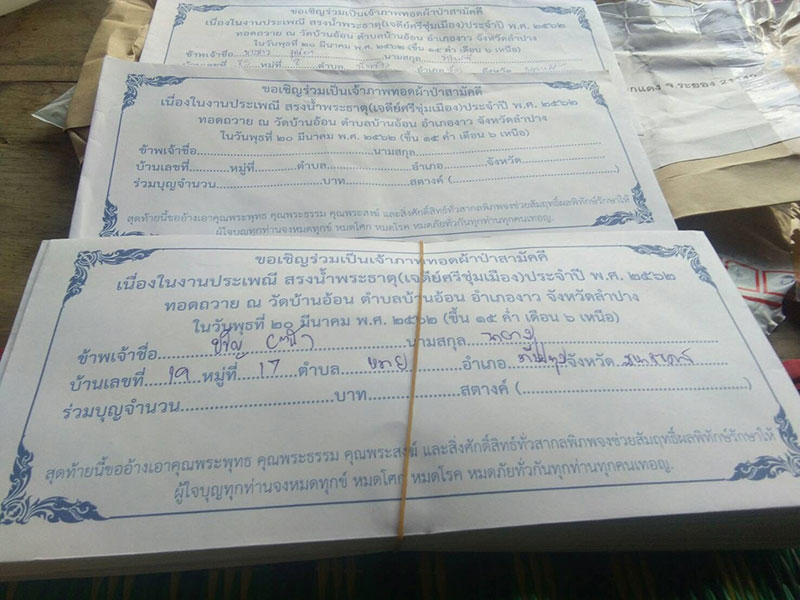 ขอเชิญร่วมเป็นเจ้าภาพทอดผ้าป่าสามัคคี
เนื่องในงานประเพณี สรงน้ำพระธาตุ(เจดีย์ศรีชุ่มเมือง)ประจำปี พ.ศ. ๒๕๖๒
ทอดถวาย ณ วัดบ้านอ้อน ตำบลบ้านอ้อน อำเภองาว จังหวัดลำปาง
ในวันพุธที่ ๒๐ มีนาคม พ.ศ. ๒๕๖๒ (ขึ้น ๑๕ ค่ำ เดือน ๖ เหนือ)
ข้าพเจ้าชื่อ นามสกุล
หมู่ที่ ตำบล จังหวัด
กแดง จ.ระยอง
ขอเชิญร่วมเป็นเจ้าภาพทอดผ้าป่าสามัคคี
เนื่องในงานประเพณี สรงน้ำพระธาตุ(เจดีย์ศรีชุ่มเมือง)ประจำปี พ.ศ. ๒๕๖๒
ทอดถวาย ณ วัดบ้านอ้อน ตำบลบ้านอ้อน อำเภองาว จังหวัดลำปาง
ในวันพุธที่ ๒๐ มีนาคม พ.ศ. ๒๕๖๒ (ขึ้น ๑๕ ค่ำ เดือน ๖ เหนือ)
ข้าพเจ้าชื่อ............................นามสกุล............................
บ้านเลขที่............หมู่ที่............ตำบล....................อำเภอ....................จังหวัด....................
ร่วมบุญจำนวน............................บาท....................สตางค์ (............................)
สุดท้ายนี้ขออ้างเอาคุณพระพุทธ คุณพระธรรม คุณพระสงฆ์ และสิ่งศักดิ์สิทธ์ทั่วสากลพิภพจงช่วยสัมฤทธิ์ผลพิทักษ์รักษาให้
ผู้ใจบุญทุกท่านจงหมดทุกข์ หมดโศก หมดโรค หมดภัยทั่วกันทุกท่านทุกคนเทอญ.
ขอเชิญร่วมเป็นเจ้าภาพทอดผ้าป่าสามัคคี
เนื่องในงานประเพณี สรงน้ำพระธาตุ(เจดีย์ศรีชุ่มเมือง)ประจำปี พ.ศ. ๒๕๖๒
ทอดถวาย ณ วัดบ้านอ้อน ตำบลบ้านอ้อน อำเภองาว จังหวัดลำปาง
ในวันพุธที่ ๒๐ มีนาคม พ.ศ. ๒๕๖๒ (ขึ้น ๑๕ ค่ำ เดือน ๖ เหนือ)
ข้าพเจ้าชื่อ นามสกุล
บ้านเลขที่ 19 หมู่ที่ 17 ตำบล อำเภอ จังหวัด
ร่วมบุญจำนวน............................บาท....................สตางค์ (............................)
สุดท้ายนี้ขออ้างเอาคุณพระพุทธ คุณพระธรรม คุณพระสงฆ์ และสิ่งศักดิ์สิทธ์ทั่วสากลพิภพจงช่วยสัมฤทธิ์ผลพิทักษ์รักษาให้
ผู้ใจบุญทุกท่านจงหมดทุกข์ หมดโศก หมดโรค หมดภัยทั่วกันทุกท่านทุกคนเทอญ.